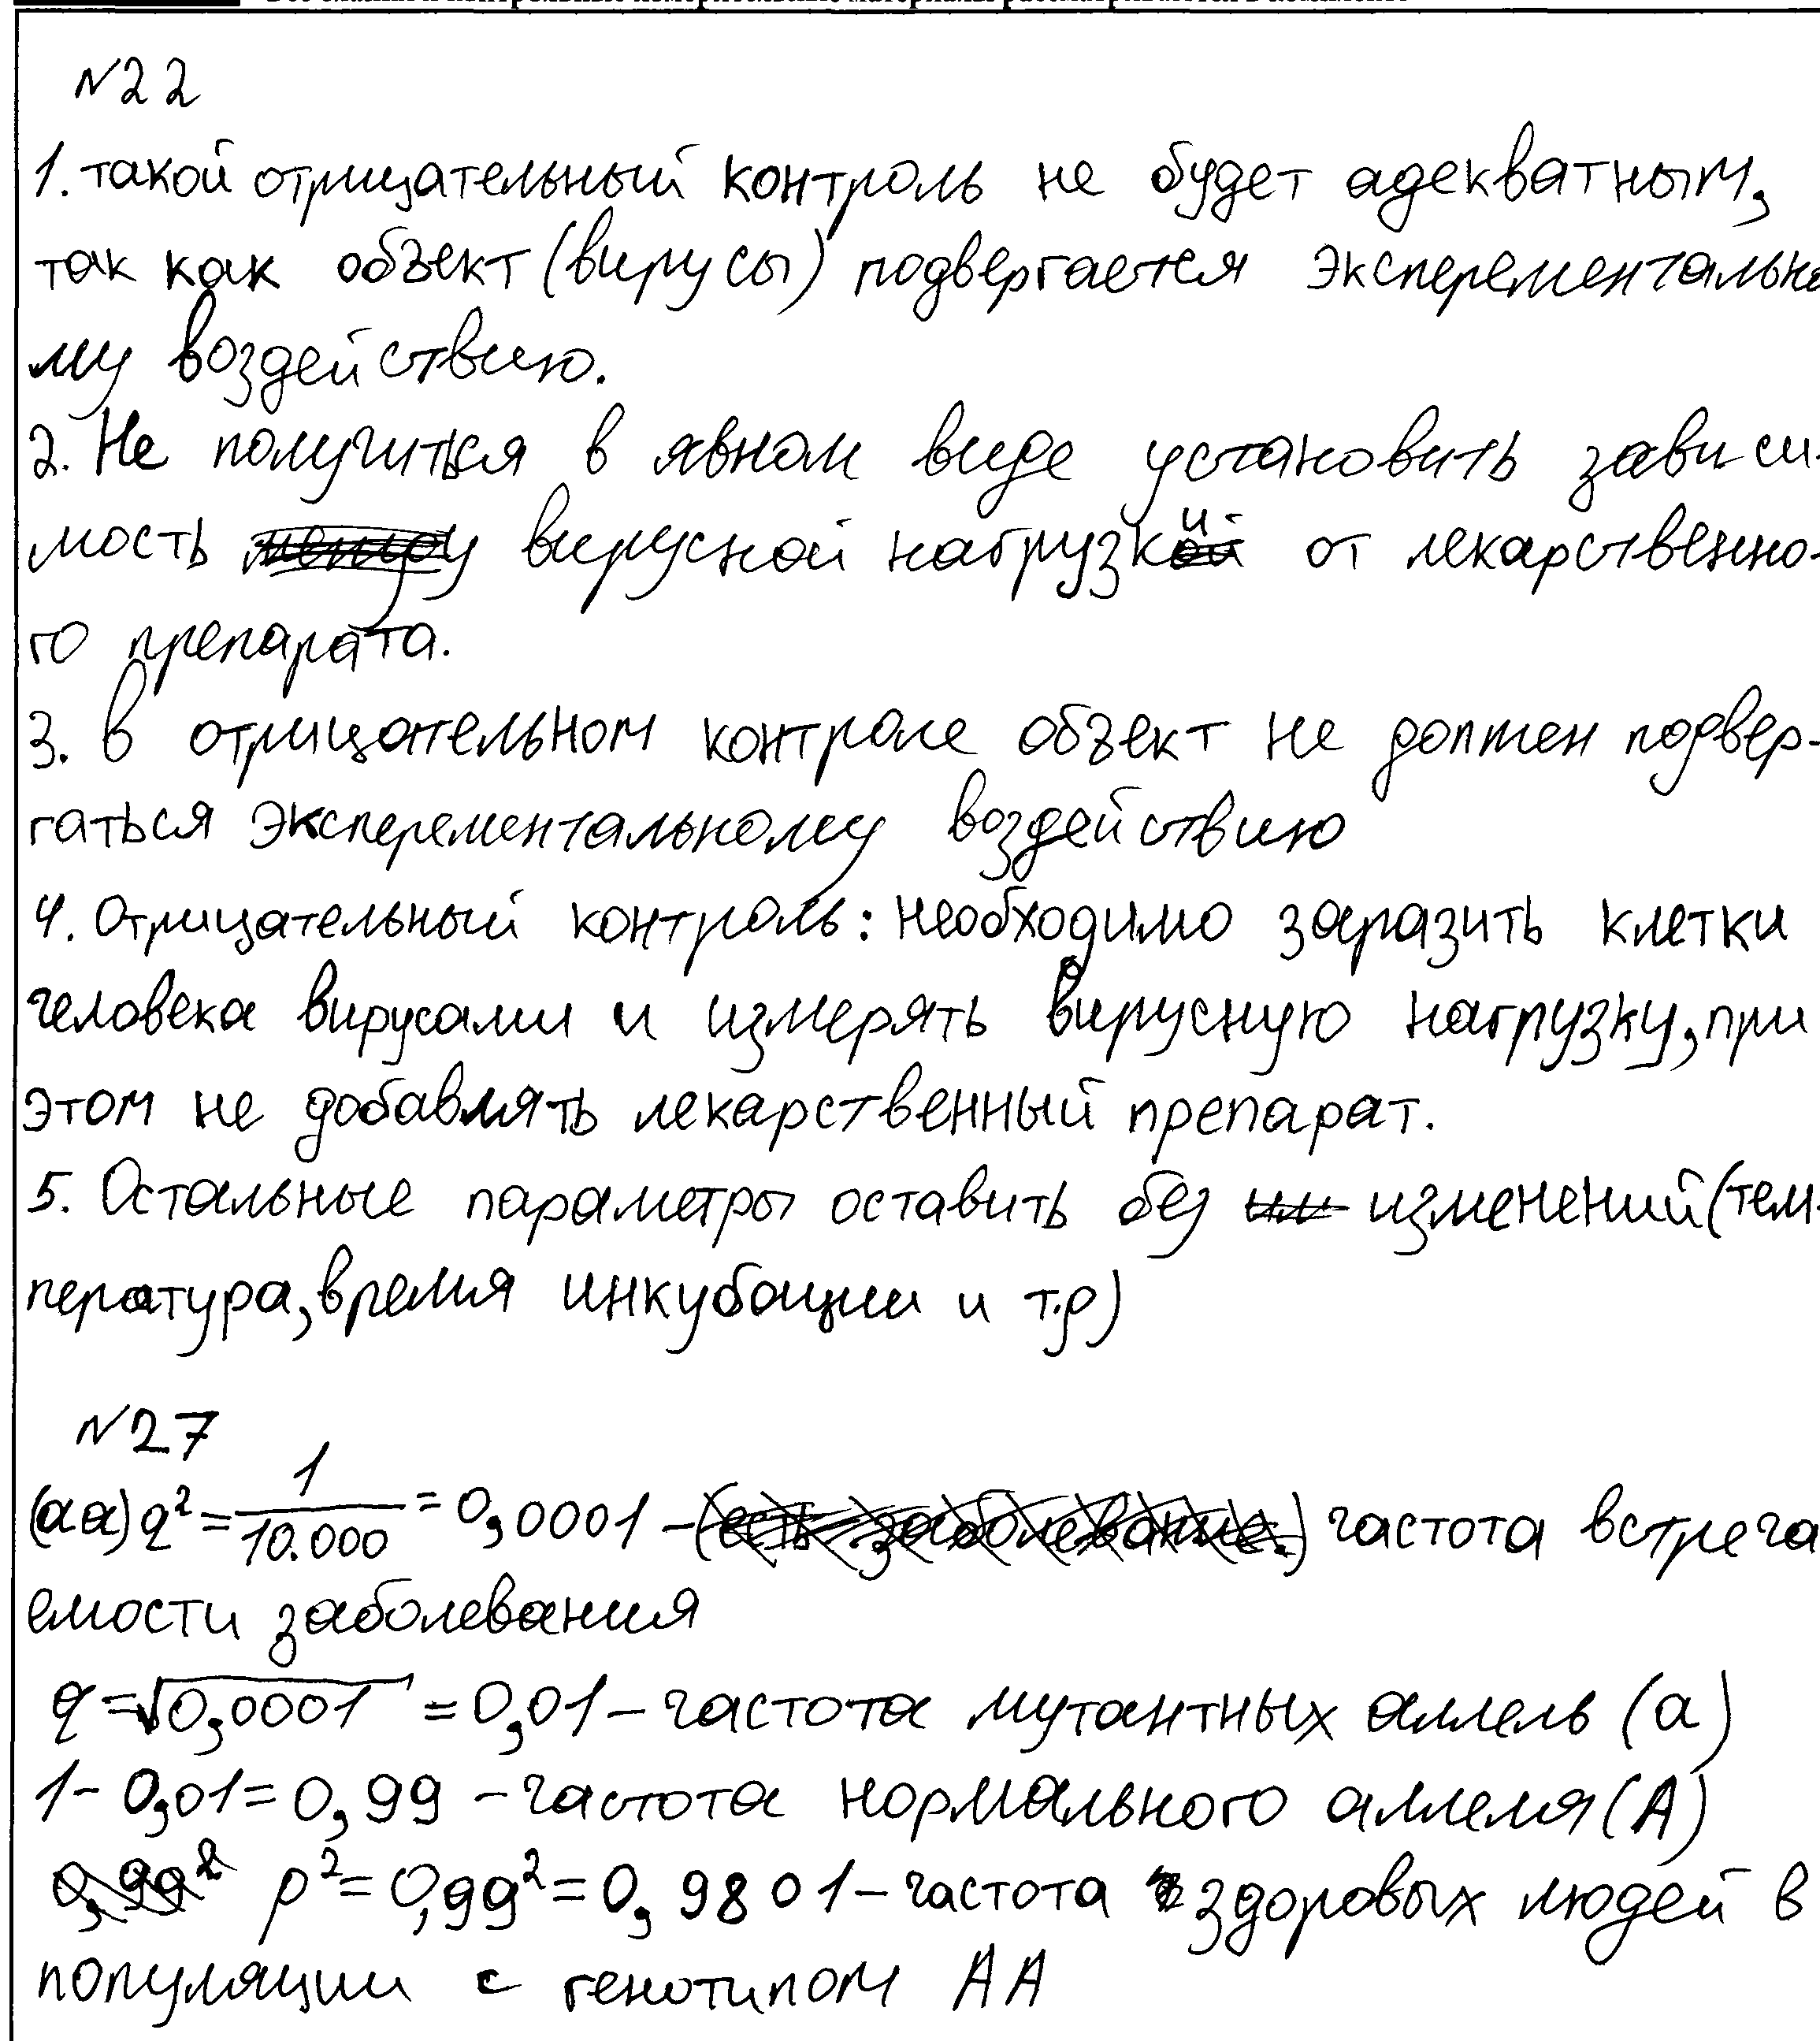 №22
1. такой отрицательный контроль не будет адекватным,
так как объект (вирусы) подвергается эксперементально
му воздействию.
2. Не получиться в явном виде установить зависи-
мость вирусной нагрузки от лекарственно-
го препарата.
3. В отрицательном контроле объект не должен подвер-
гаться эксперементальному воздействию
4. Отрицательный контроль: необходимо заразить клетки
человека вирусами и измерять вирусную нагрузку, при
этом не добавлять лекарственный препарат.
5. Остальные параметры оставить без изменений (тем-
пература, время инкубации и т.д)
№27
(aa) q² = 1/10.000 = 0,0001 - частота встреча
емости заболевания
q = √0,0001 = 0,01 - частота мутантных аллель (a)
1 - 0,01 = 0,99 - частота нормального аллеля (A)
p² = 0,99² = 0,9801 - частота здоровых людей в
популяции с генотипом AA